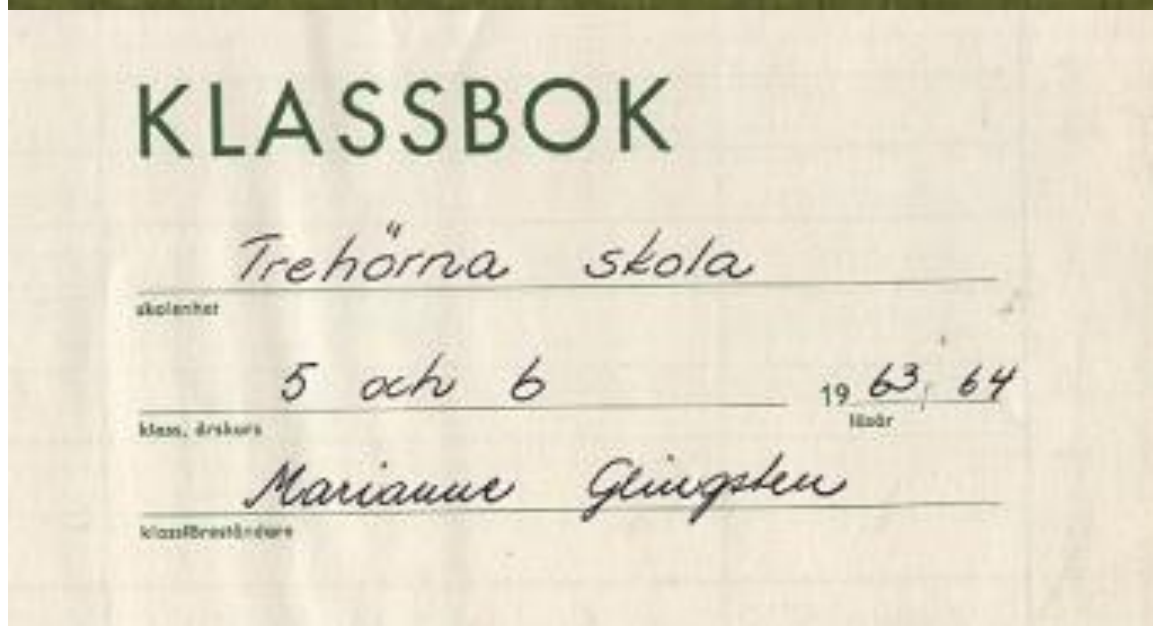 KLASSBOK
Trehörna skola
skolenhet
5 och 6 19 63, 64
klass, årskurs läsår
Marianne
klassföreståndare